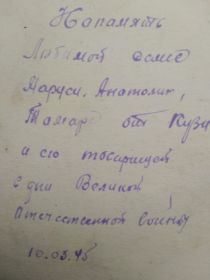 На память
Любимой
Маруси, Анатолию,
Тамаре от Кузи
и его товарищей
с дня Великой
Отечественной Войны
10.03.45